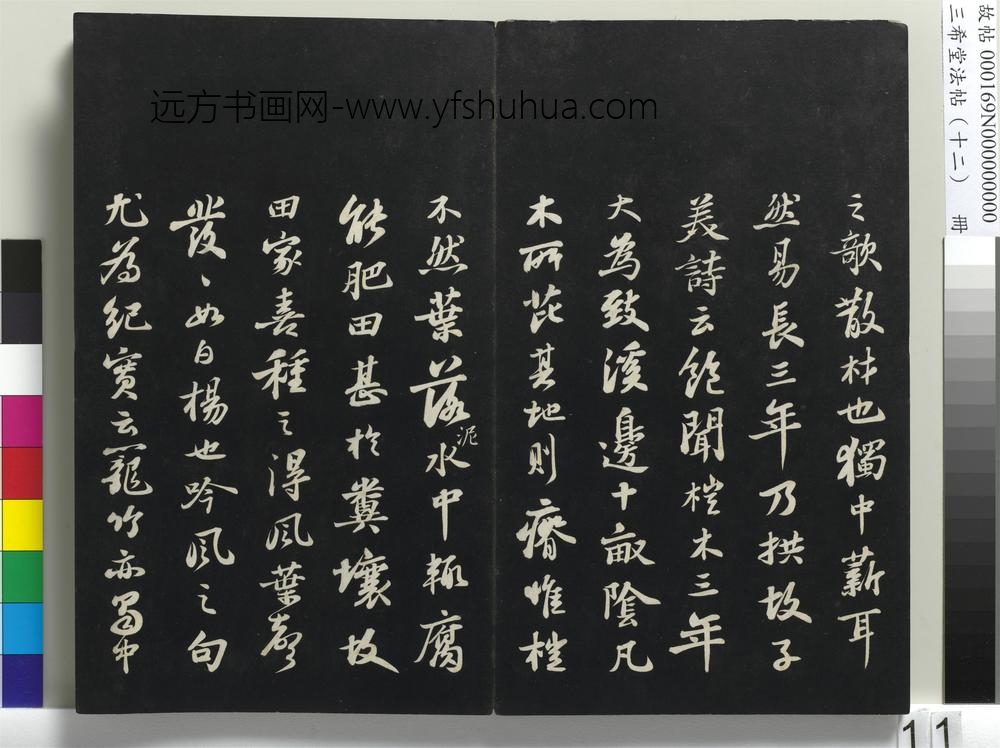 远方书画网-www.yfshuhua.com
故帖 000169N000000000
三希堂法帖（十二） 冊
之歌散材也獨中薪耳
然易長三年乃拱故子
美詩云飽聞榿木三年
大為致溪邊十畝陰凡
木所芘其地則瘠惟榿
不然葉落泥水中輒腐
能肥田甚於糞壤故
田家喜種之得風葉聲
發〻如白楊也吟風之句
尤為紀實云籠竹亦蜀中
11